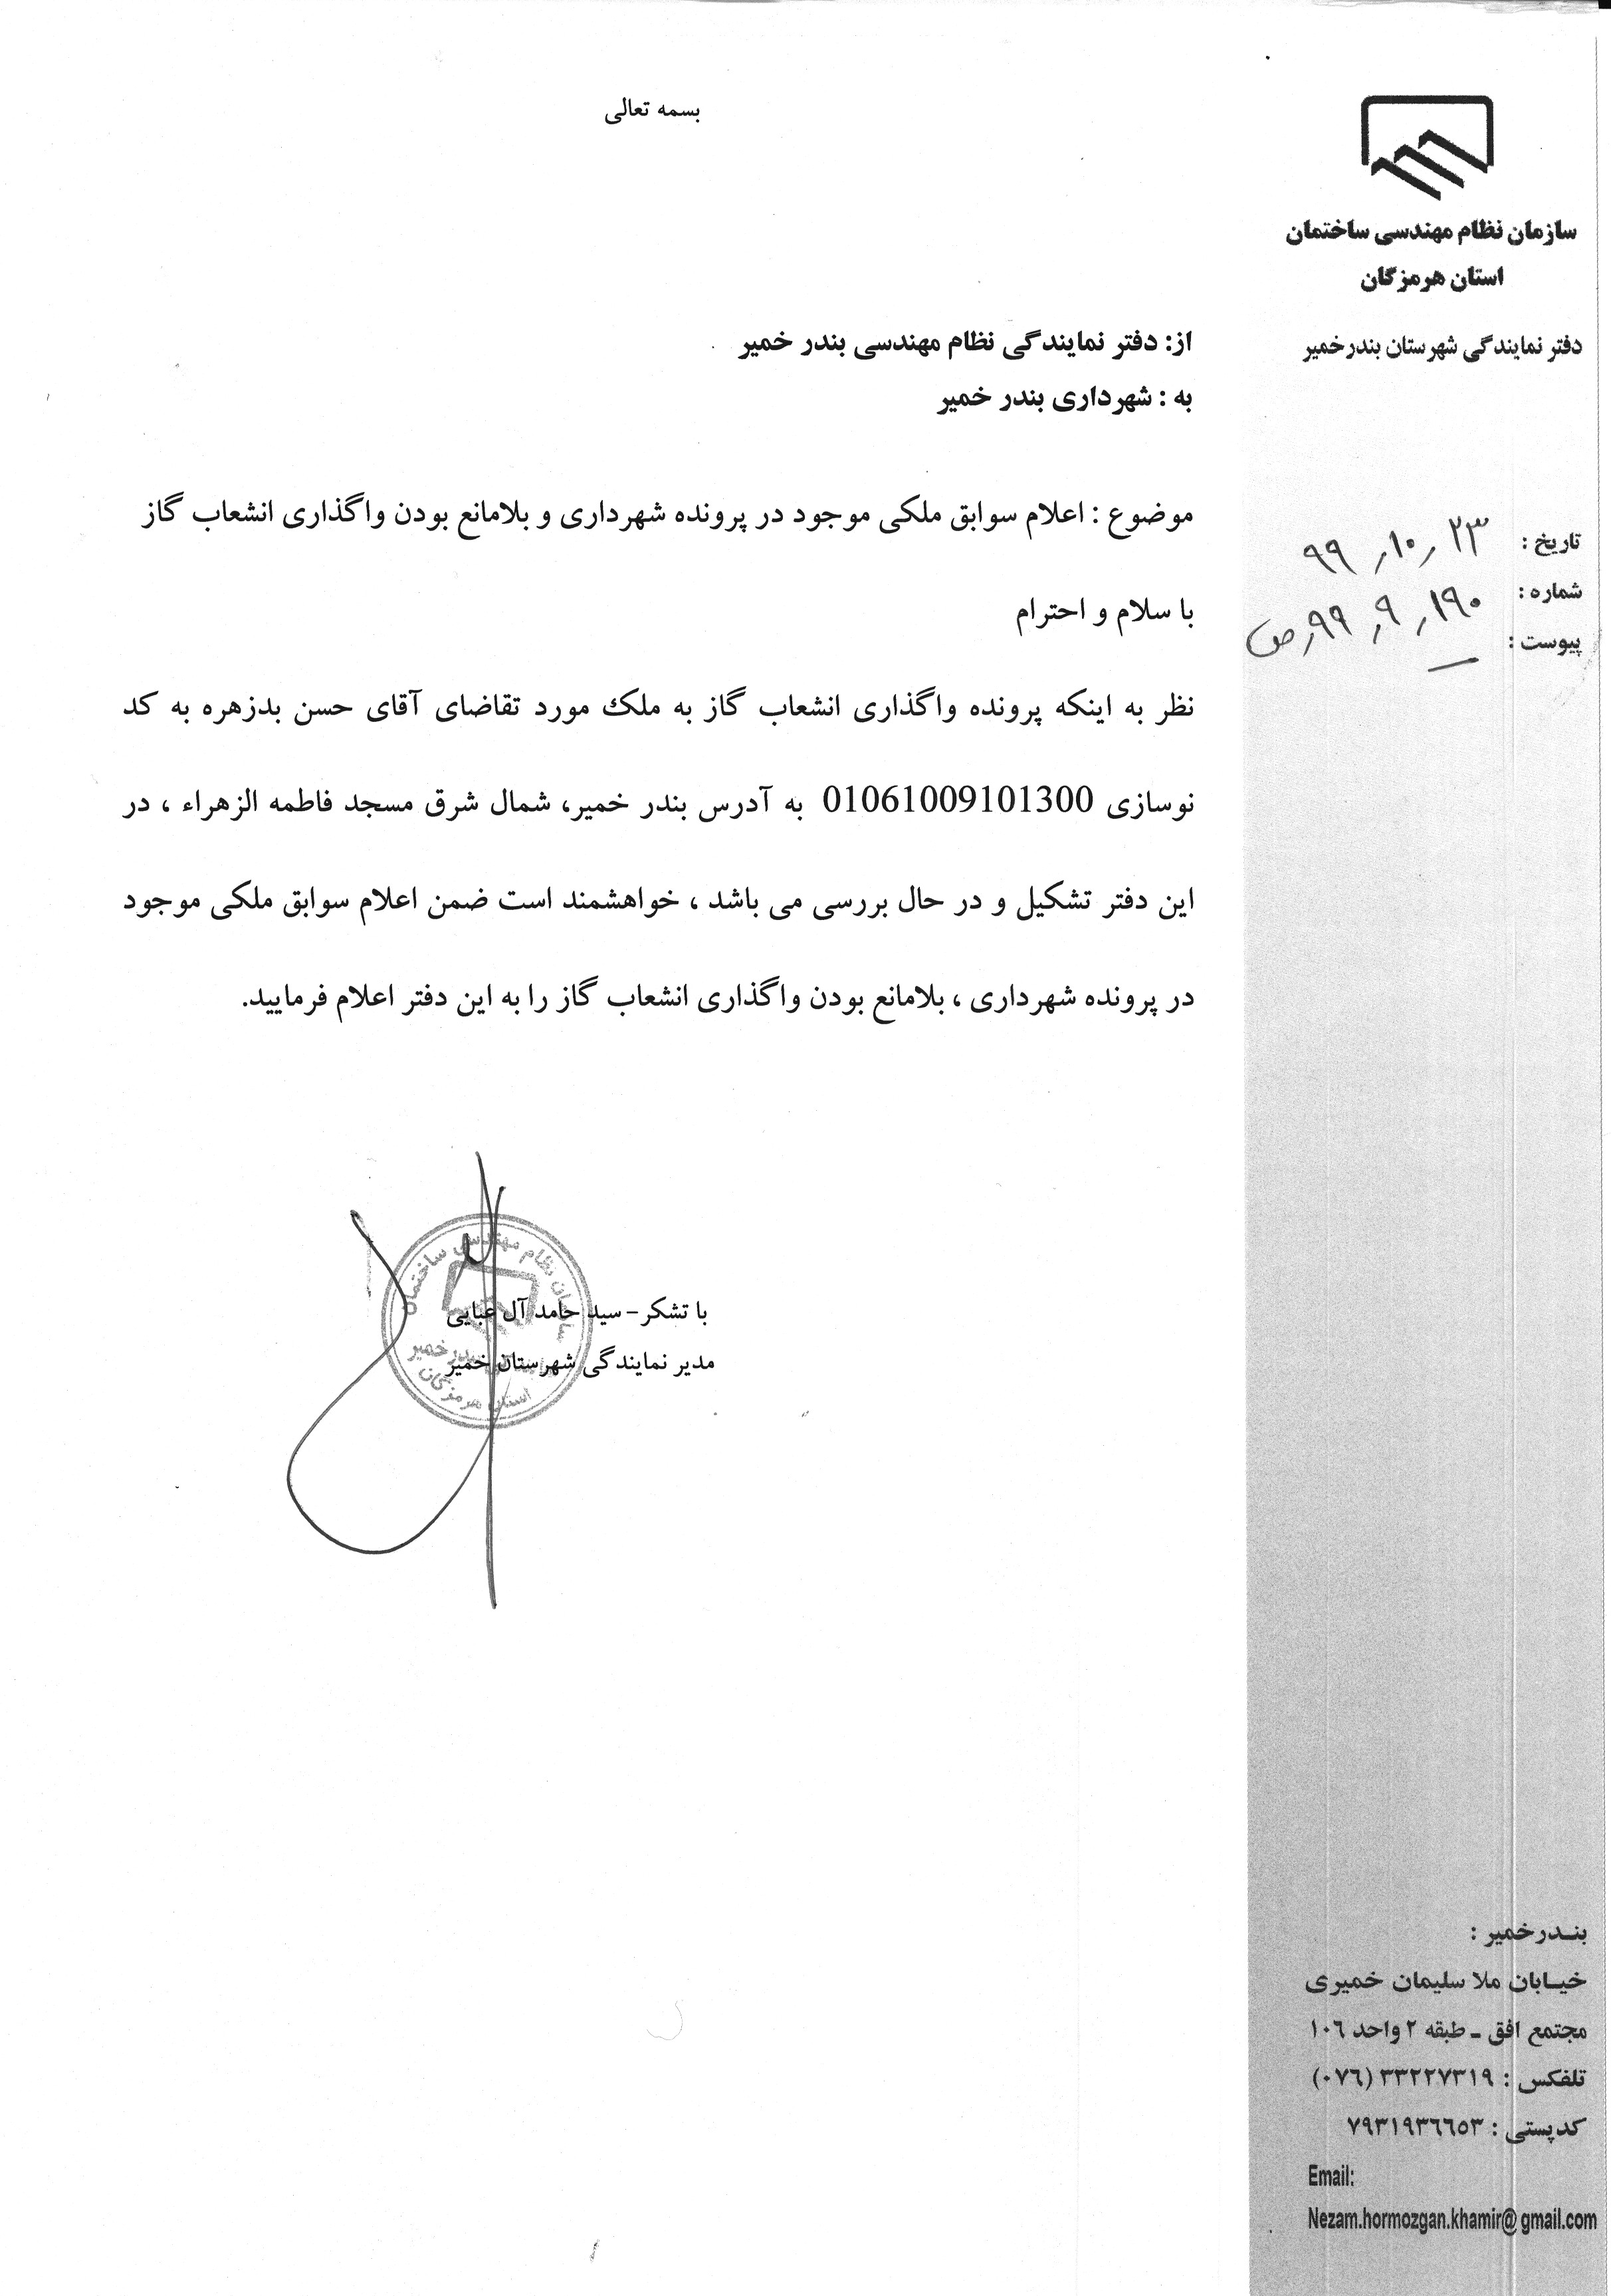 بسمه تعالی
سازمان نظام مهندسی ساختمان
استان هرمزگان
دفتر نمایندگی شهرستان بندرخمیر
تاریخ : ۹۹٫۱۰٫۲۳
شماره : ۱۹۰٫۹٫۹۹٫ص
پیوست : —
از: دفتر نمایندگی نظام مهندسی بندر خمیر
به : شهرداری بندر خمیر
موضوع : اعلام سوابق ملکی موجود در پرونده شهرداری و بلامانع بودن واگذاری انشعاب گاز
با سلام و احترام
نظر به اینکه پرونده واگذاری انشعاب گاز به ملک مورد تقاضای آقای حسن بدزهره به کد
نوسازی 01061009101300 به آدرس بندر خمیر، شمال شرق مسجد فاطمه الزهراء ، در
این دفتر تشکیل و در حال بررسی می باشد ، خواهشمند است ضمن اعلام سوابق ملکی موجود
در پرونده شهرداری ، بلامانع بودن واگذاری انشعاب گاز را به این دفتر اعلام فرمایید.
با تشکر – سید حامد آل عبایی
مدیر نمایندگی شهرستان خمیر
سازمان نظام مهندسی ساختمان
بندر خمیر
استان هرمزگان
بندرخمیر :
خیابان ملا سلیمان خمیری
مجتمع افق ـ طبقه ۲ واحد ۱۰۶
تلفکس : ۳۳۲۲۷۳۱۹ (۰۷۶)
کدپستی : ۷۹۳۱۹۳۶۶۵۳
Email:
Nezam.hormozgan.khamir@gmail.com